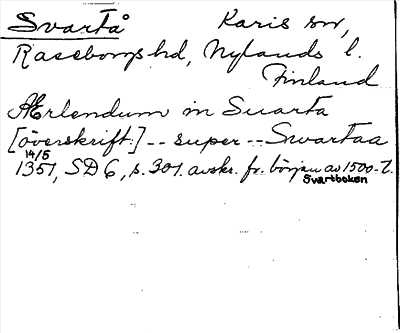 Svartå Karis sn,
Raseborgs hd, Nylands l.
Finland
Ærlendum in Suarta
[överskrift] -- super -- Swartaa
14/5
1351, SD 6, s. 301. avskr. fr. början av 1500-t.
Svartboken